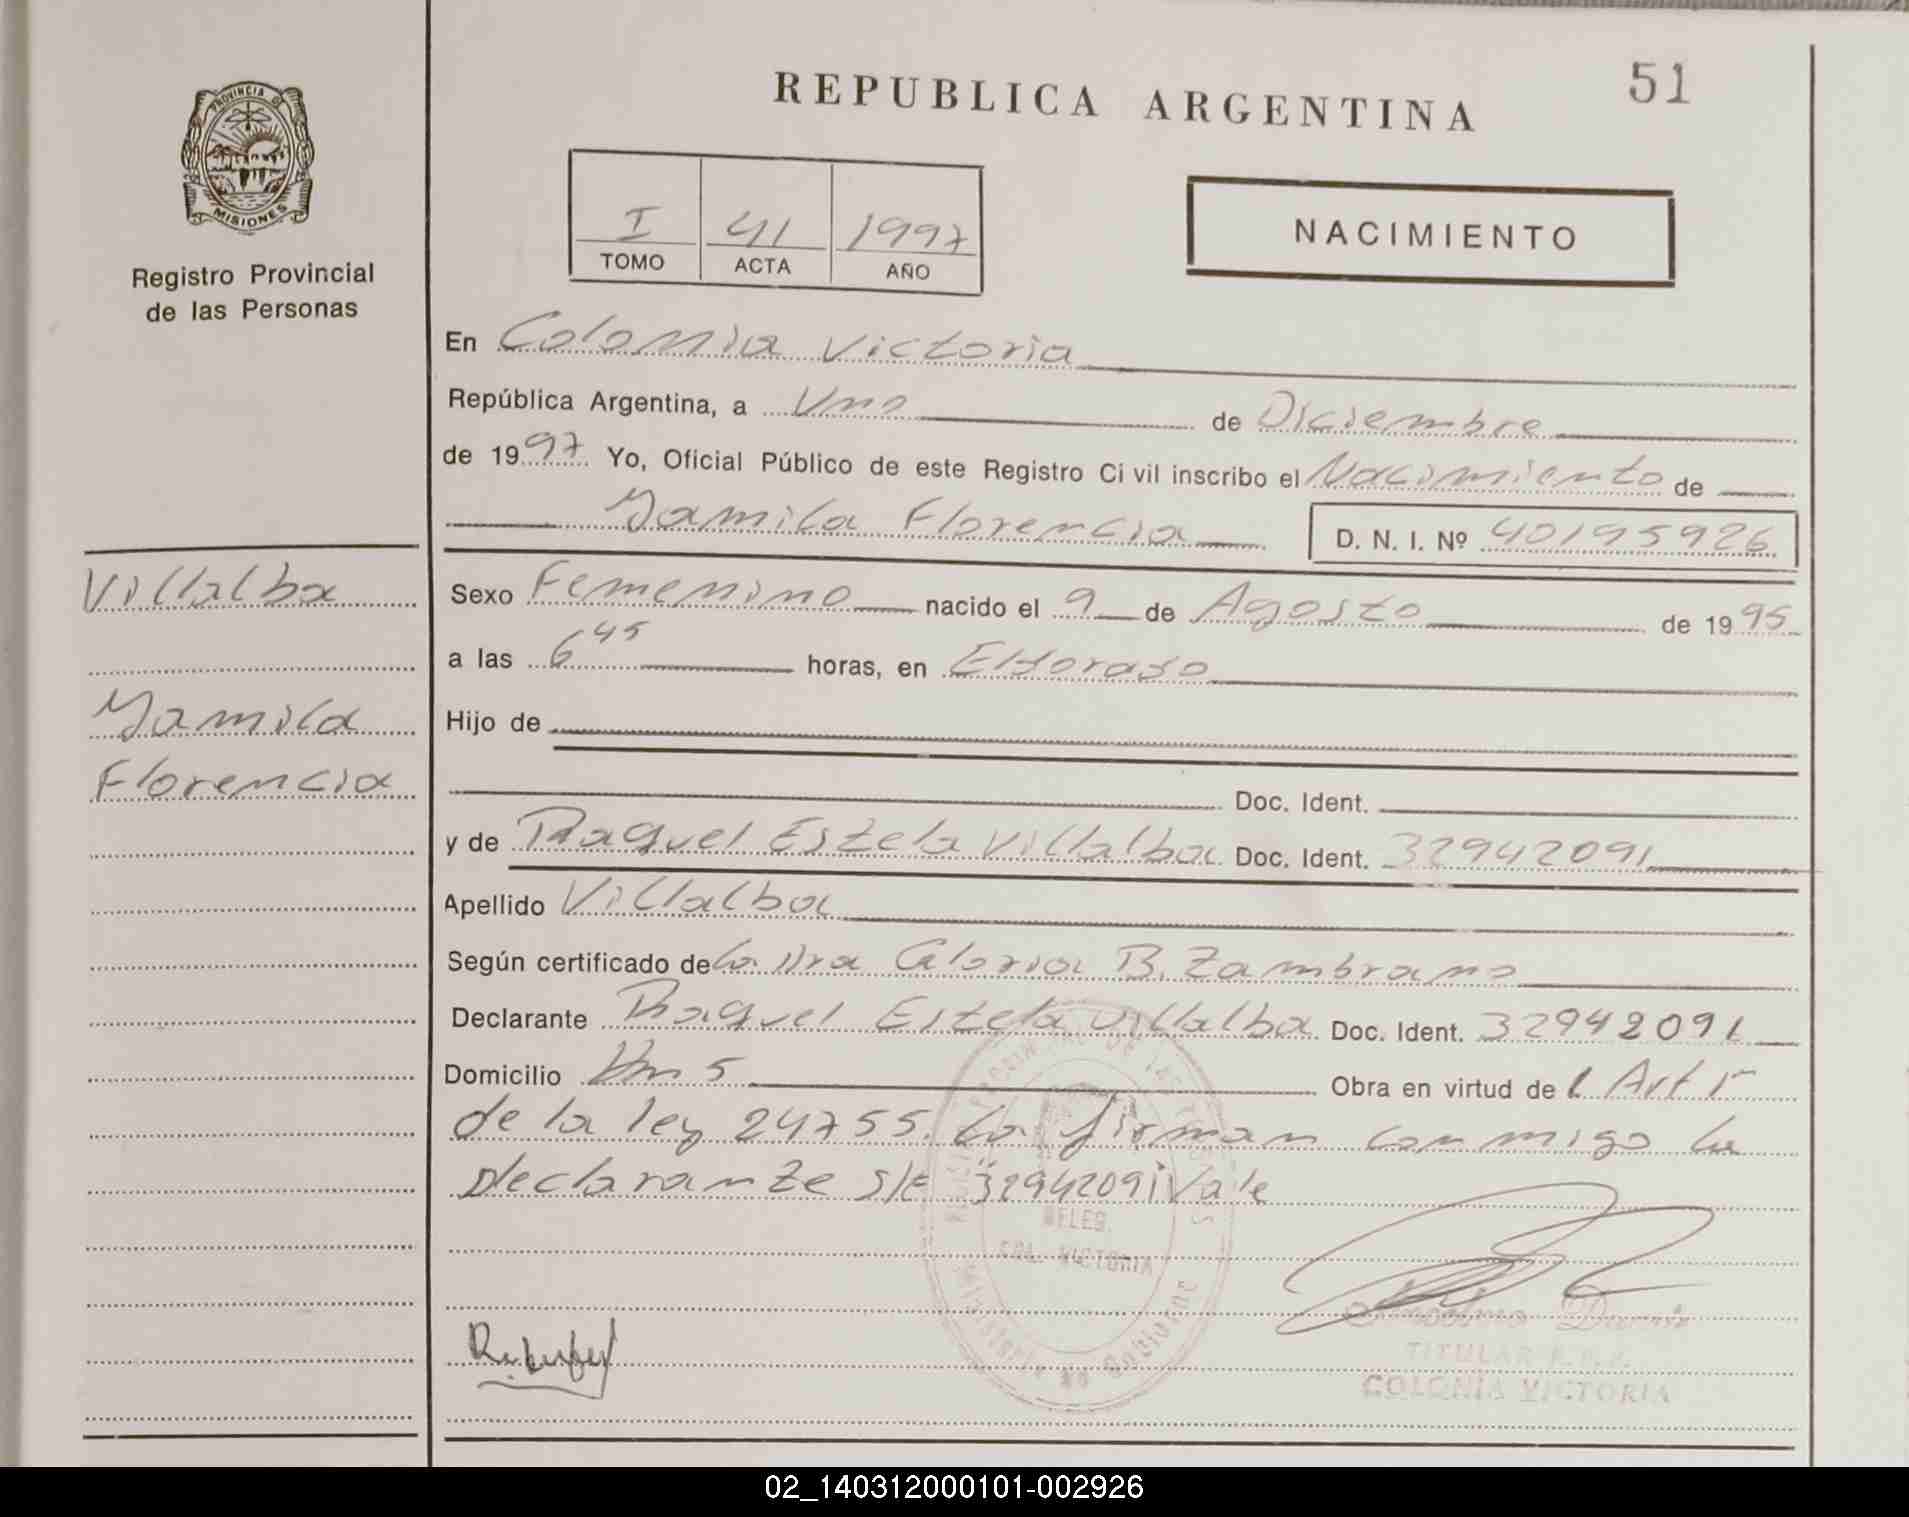 51
REPUBLICA ARGENTINA
PROVINCIA DE
MISIONES
Registro Provincial
de las Personas
I 41 1997
TOMO ACTA AÑO
NACIMIENTO
En Colonia Victoria
República Argentina, a Uno de Diciembre
de 1997 Yo, Oficial Público de este Registro Ci vil inscribo el Nacimiento de
Yamila Florencia D. N. I. Nº 40195926
Villalba
Yamila
Florencia
Sexo Femenino nacido el 9 de Agosto de 1995
a las 6 45 horas, en Eldorado
Hijo de
Doc. Ident.
y de Raquel Estela Villalba Doc. Ident. 32942091
Apellido Villalba
Según certificado de la Dra Gloria B. Zambrano
Declarante Raquel Estela Villalba Doc. Ident. 32942091
Domicilio Km 5 Obra en virtud del Art 1º
de la ley 24755. La firman conmigo la
declarante s/E "32942091" Vale
DELEG.
COL. VICTORIA
Ministerio de Gobierno
TITULAR R.P.P.
COLONIA VICTORIA
02_140312000101-002926